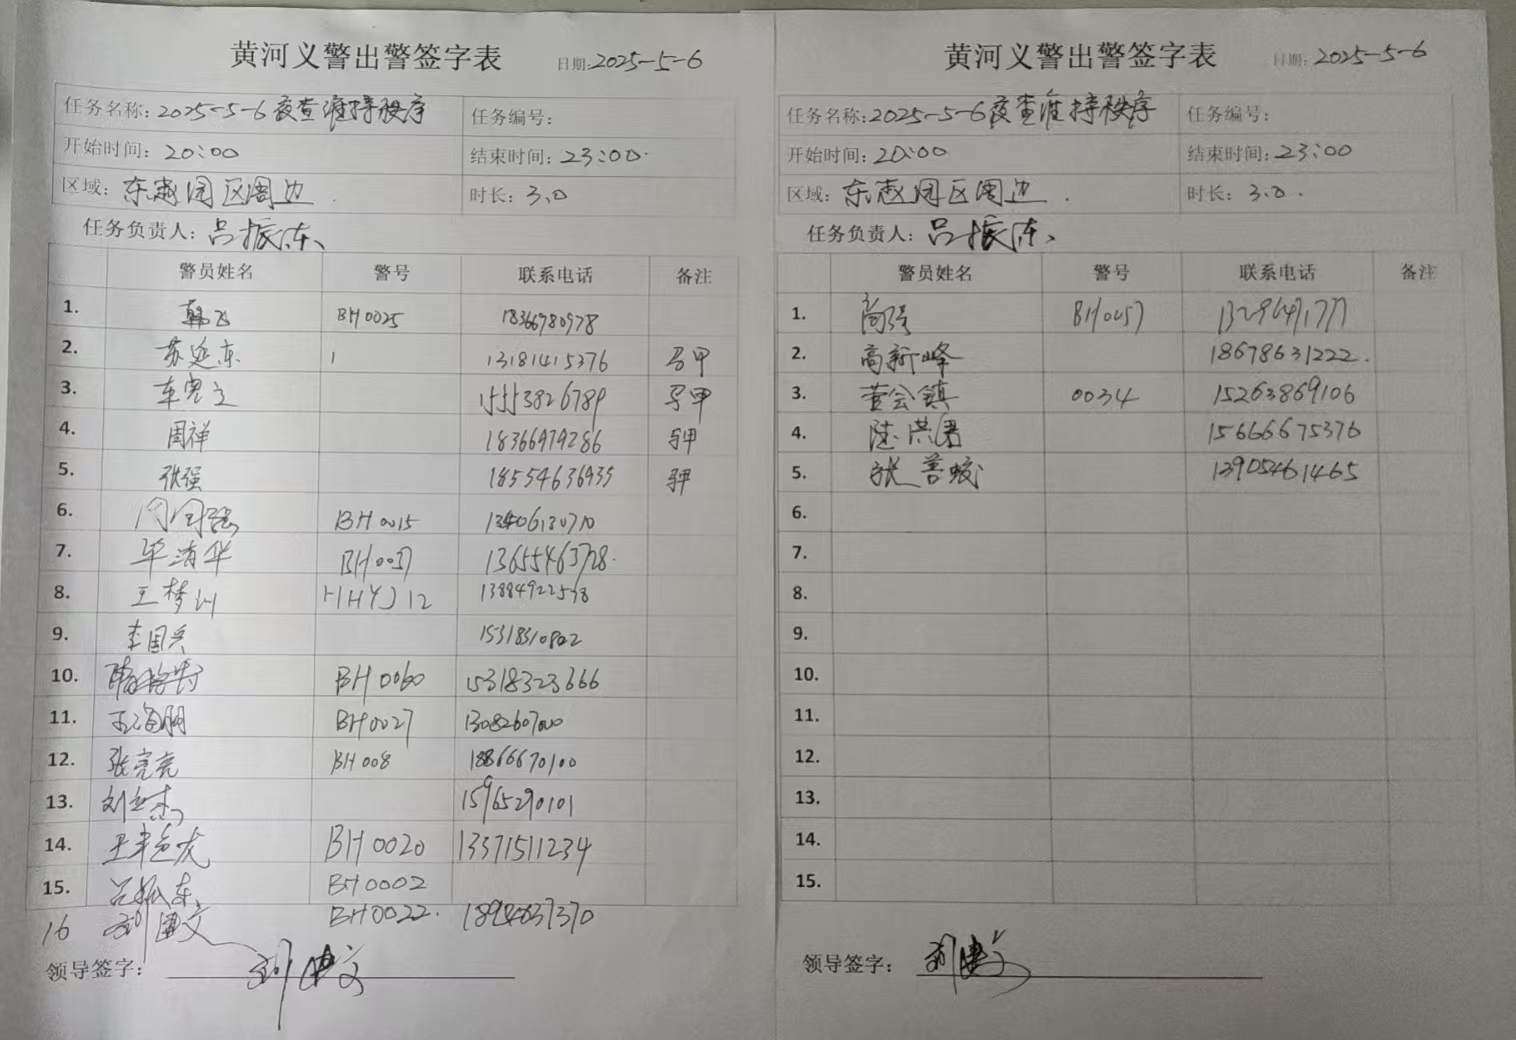 黄河义警出警签字表 日期:2025-5-6
任务名称:2025-5-6夜查维持秩序 任务编号:
开始时间:20:00 结束时间:23:00
区域:东赵园区周边 时长:3.0
任务负责人:吕振东
警员姓名 警号 联系电话 备注
1. 韩飞 BH0025 18366780978
2. 苏延东 1 13181415376 马甲
3. 车宪立 15553826789 马甲
4. 周祥 18366979286 马甲
5. 张强 18554636935 马甲
6. BH0015
7. 毕清华 BH0037 13655463728
8. 王梦川 HHYJ12 13884922538
9. 李国兴
10. BH0060 15318323666
11. 王海朋 BH0027
12. 张亮亮 BH008 18866670100
13. 15965290101
14. BH0020 13371511234
15. 吕振东 BH0002
16 刘建文 BH0022
领导签字: 刘建文
黄河义警出警签字表 日期:2025-5-6
任务名称:2025-5-6夜查维持秩序 任务编号:
开始时间:20:00 结束时间:23:00
区域:东赵园区周边 时长:3.0
任务负责人:吕振东
警员姓名 警号 联系电话 备注
1. 高强 BH0057
2. 高新峰 18678631222
3. 董会镇 0034 15263869106
4. 陈洪君 15666675376
5. 张善蛟 13905461465
6.
7.
8.
9.
10.
11.
12.
13.
14.
15.
领导签字: 刘建文